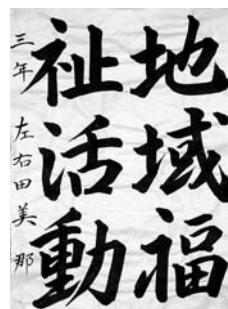 地域福
祉活動
三年 左右田美那